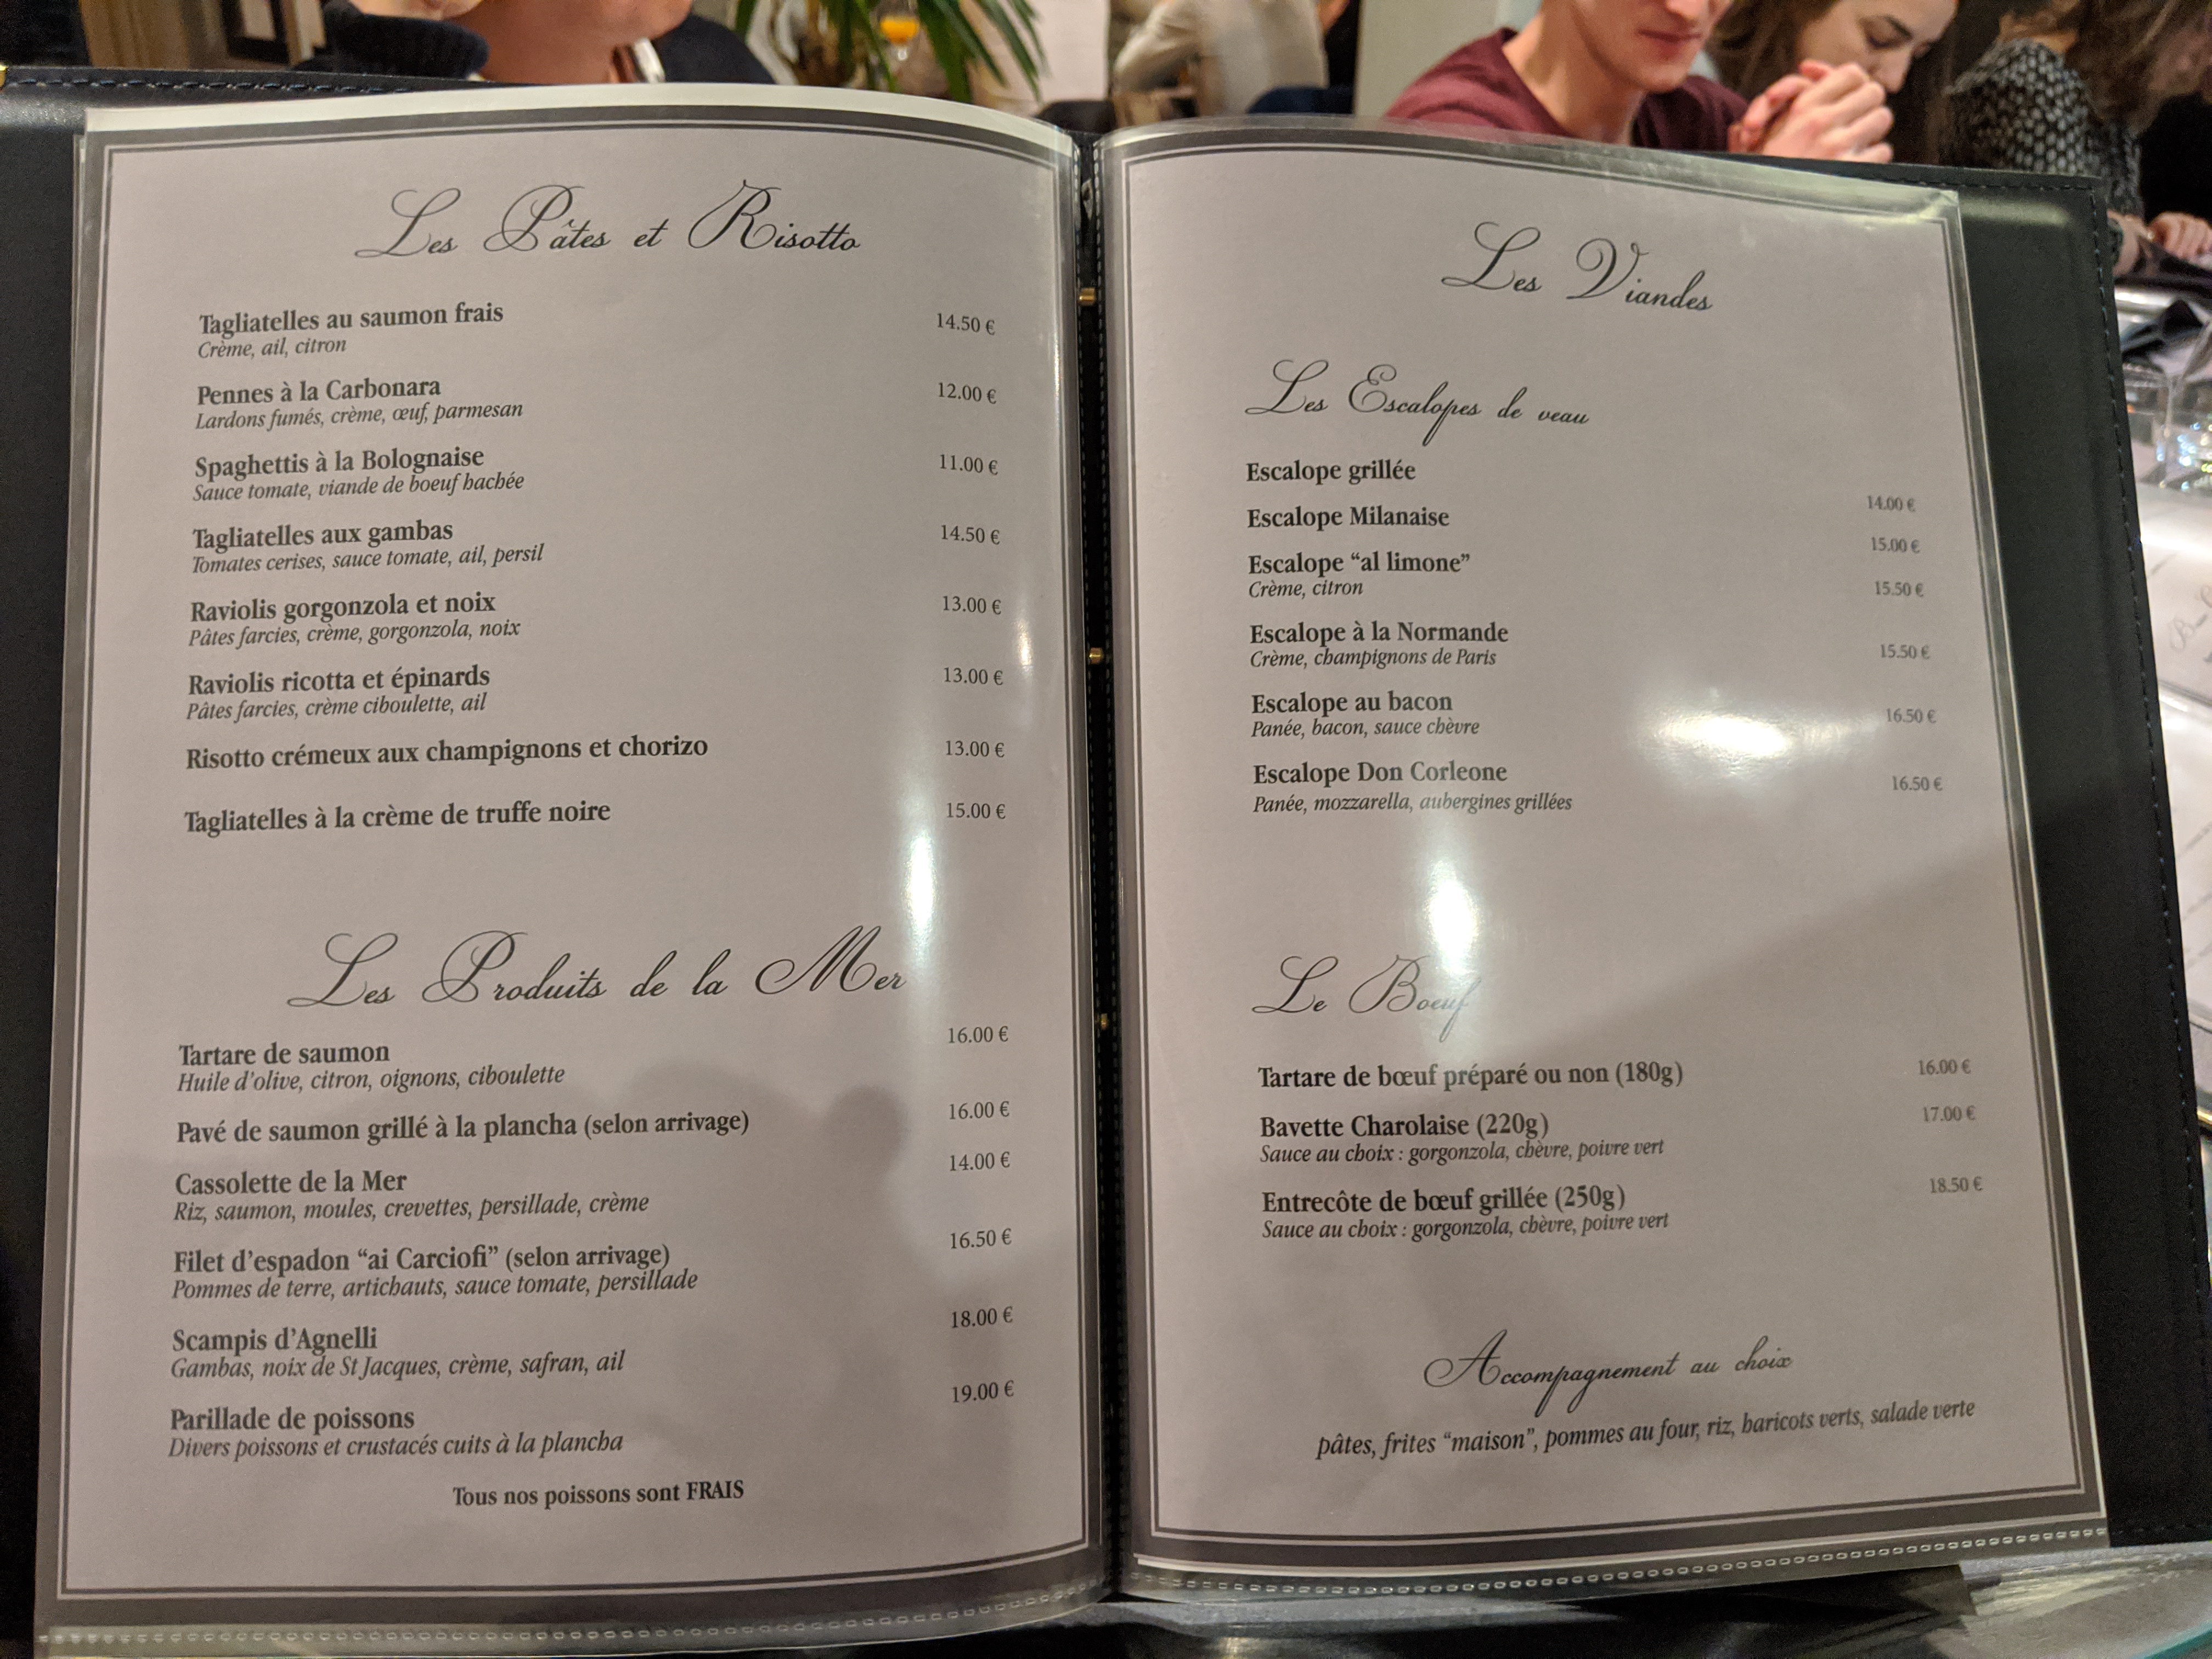 Les Pâtes et Risotto
Tagliatelles au saumon frais 14.50 €
Crème, ail, citron
Pennes à la Carbonara 12.00 €
Lardons fumés, crème, œuf, parmesan
Spaghettis à la Bolognaise 11.00 €
Sauce tomate, viande de boeuf hachée
Tagliatelles aux gambas 14.50 €
Tomates cerises, sauce tomate, ail, persil
Raviolis gorgonzola et noix 13.00 €
Pâtes farcies, crème, gorgonzola, noix
Raviolis ricotta et épinards 13.00 €
Pâtes farcies, crème ciboulette, ail
Risotto crémeux aux champignons et chorizo 13.00 €
Tagliatelles à la crème de truffe noire 15.00 €
Les Produits de la Mer
Tartare de saumon 16.00 €
Huile d'olive, citron, oignons, ciboulette
Pavé de saumon grillé à la plancha (selon arrivage) 16.00 €
Cassolette de la Mer 14.00 €
Riz, saumon, moules, crevettes, persillade, crème
Filet d'espadon “ai Carciofi” (selon arrivage) 16.50 €
Pommes de terre, artichauts, sauce tomate, persillade
Scampis d'Agnelli 18.00 €
Gambas, noix de St Jacques, crème, safran, ail
Parillade de poissons 19.00 €
Divers poissons et crustacés cuits à la plancha
Tous nos poissons sont FRAIS
Les Viandes
Les Escalopes de veau
Escalope grillée 14.00 €
Escalope Milanaise 15.00 €
Escalope “al limone” 15.50 €
Crème, citron
Escalope à la Normande 15.50 €
Crème, champignons de Paris
Escalope au bacon 16.50 €
Panée, bacon, sauce chèvre
Escalope Don Corleone 16.50 €
Panée, mozzarella, aubergines grillées
Le Boeuf
Tartare de bœuf préparé ou non (180g) 16.00 €
Bavette Charolaise (220g) 17.00 €
Sauce au choix : gorgonzola, chèvre, poivre vert
Entrecôte de bœuf grillée (250g) 18.50 €
Sauce au choix : gorgonzola, chèvre, poivre vert
Accompagnement au choix
pâtes, frites “maison”, pommes au four, riz, haricots verts, salade verte